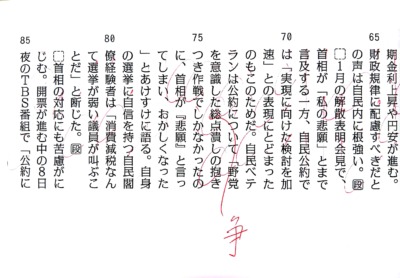 65
期金利上昇や円安が進む。
財政規律に配慮すべきだと
の声は自民内に根強い。段
１月の解散表明会見で、
首相が「私の悲願」とまで
言及する一方、自民公約で
70
は「実現に向けた検討を加
速」との表現にとどまった
のもこのためだ。自民ベテ
ランは公約について「野党
を意識した総点潰しの抱き
75
つき作戦でしかなかったの
に、首相が『悲願』と言っ
てしまい、おかしくなった
」とあけすけに語る。自身
の選挙に自信を持つ自民閣
80
僚経験者は「消費減税なん
て選挙が弱い議員が叫ぶこ
とだ」と断じた。段
首相の対応にも苦慮がに
じむ。開票が進む中の８日
85
夜のＴＢＳ番組で「公約に
争